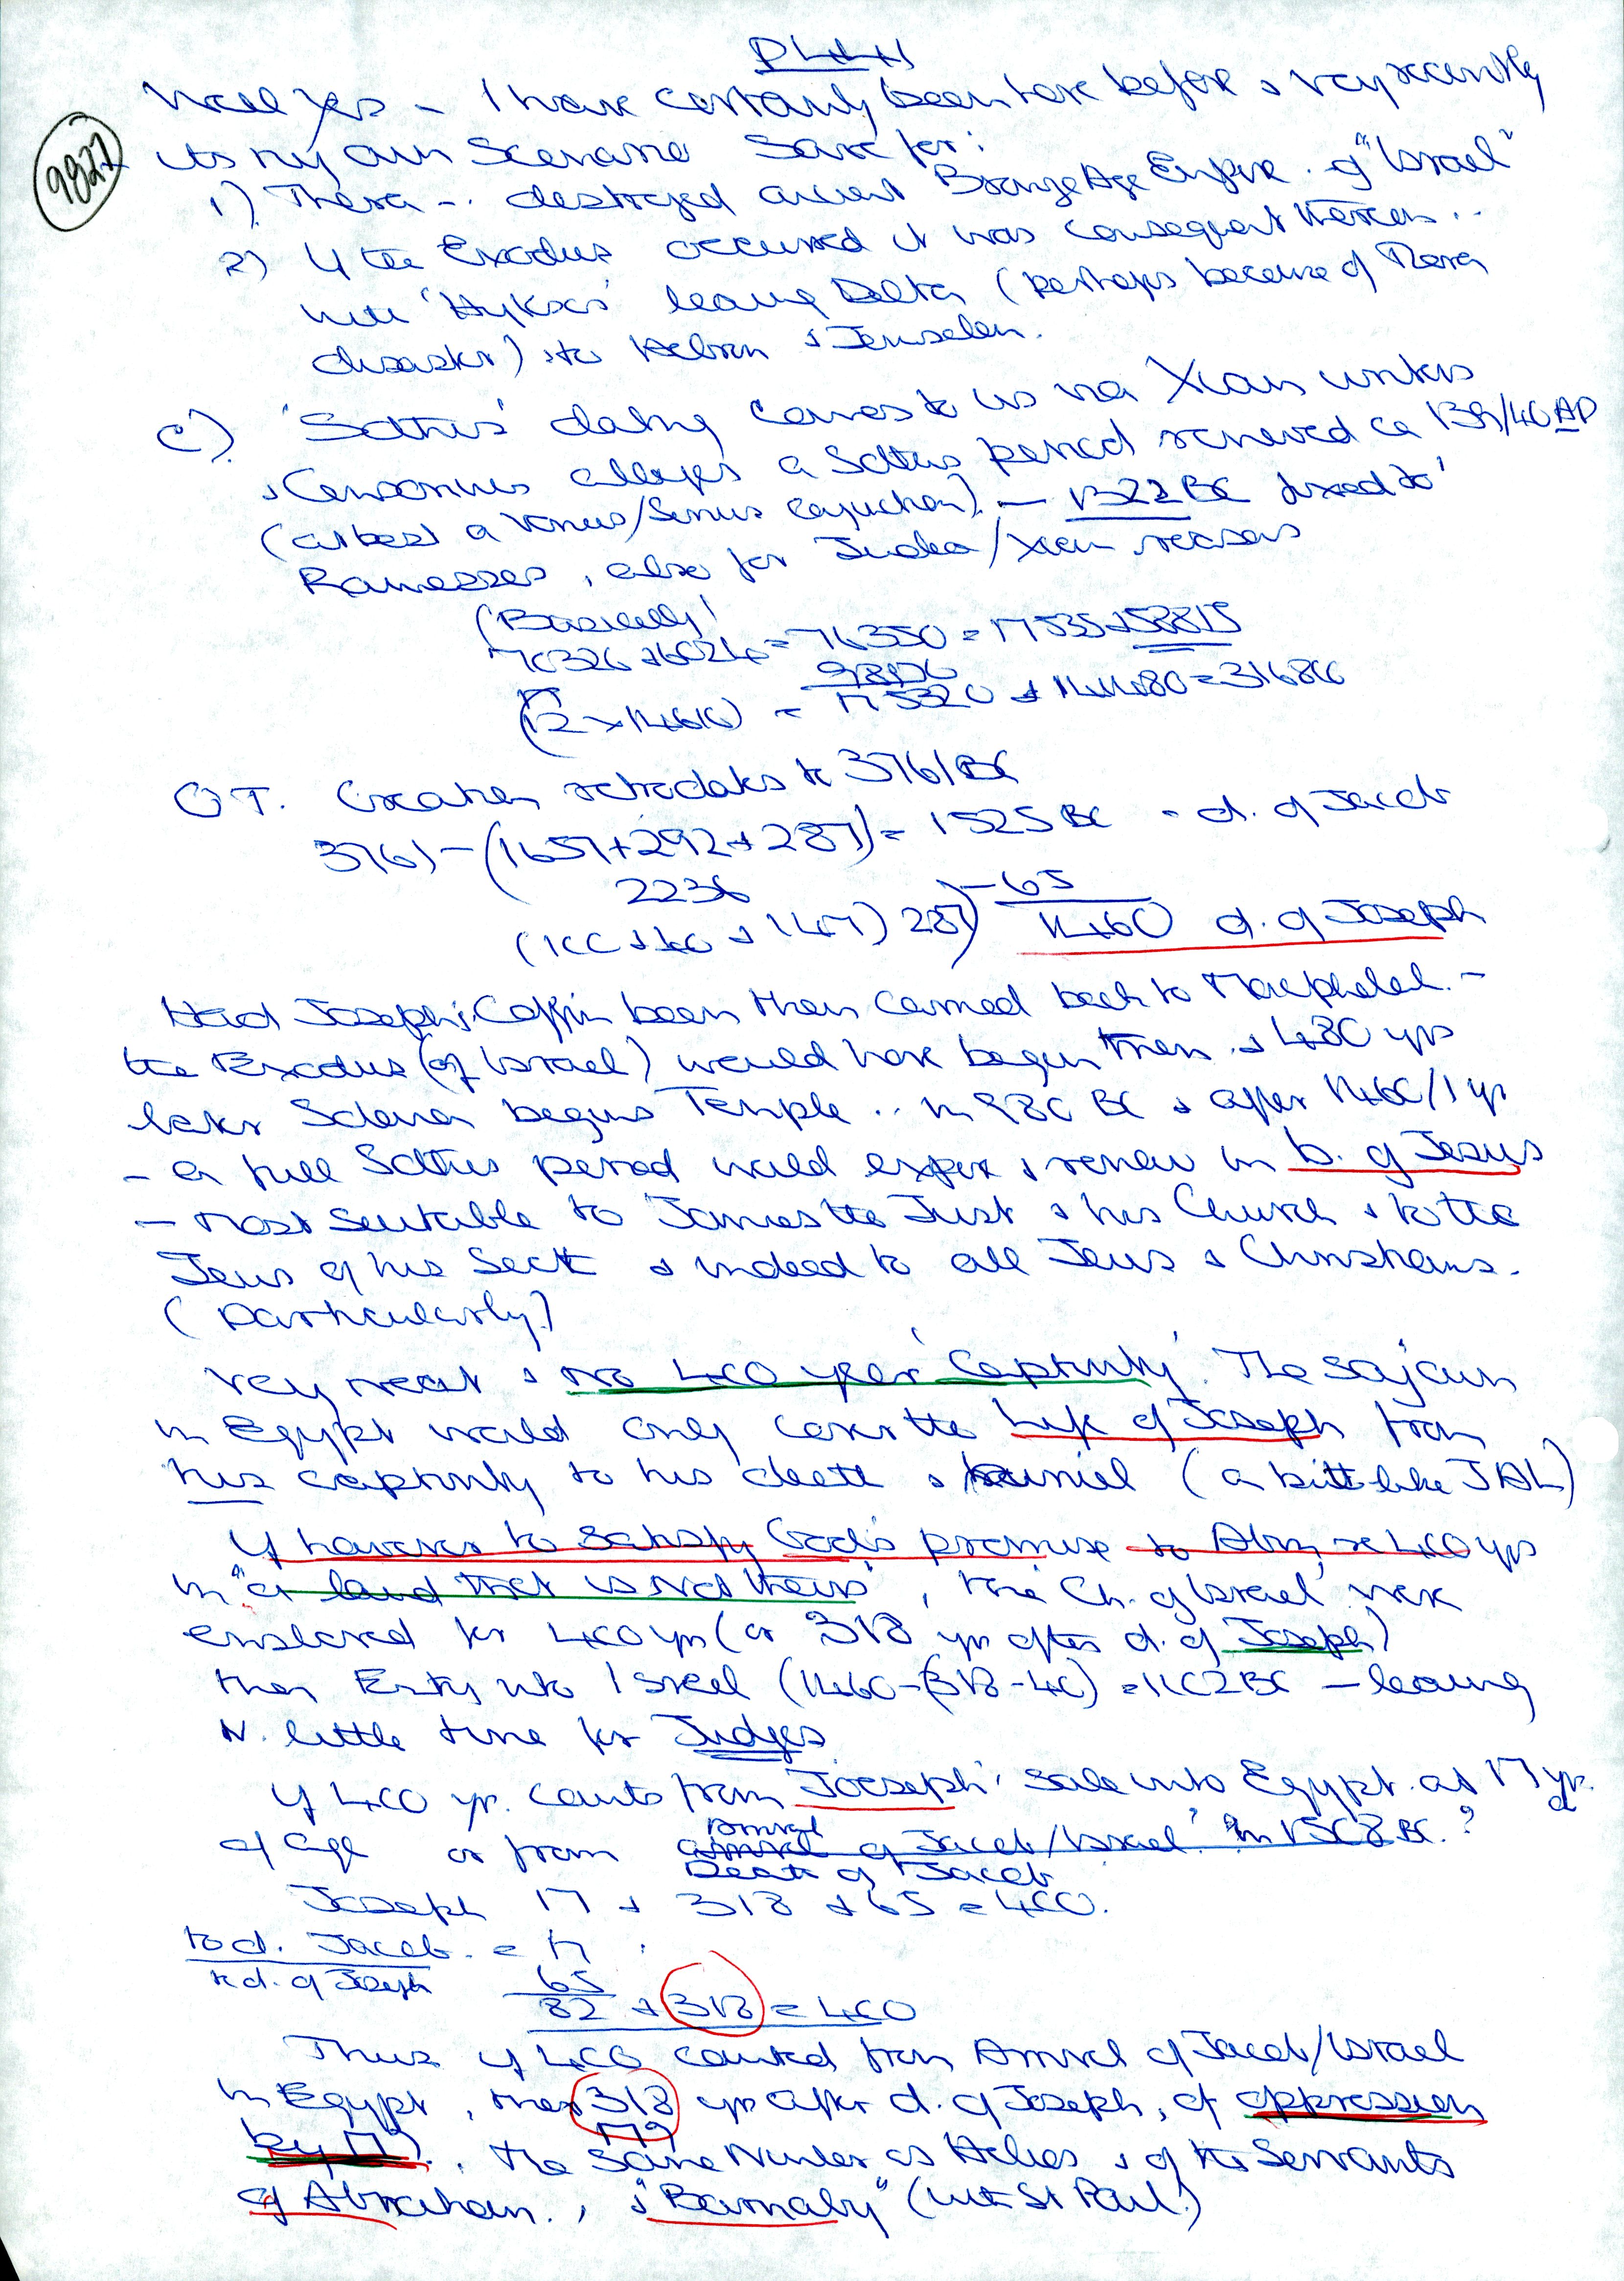 9827
Well yes – I have certainly been here before & very recently
its my own Scenario Save for:
1) Thera – destroyed ancient Bronze Age Empire of "Israel"
2) If the Exodus occurred it was consequent thereon..
with 'Hyksos' leaving Delta (perhaps because of Thera
disaster) & to Hebron & Jerusalem.
C) 'Sothis' dating comes to us via Xian writers
& Censorinus alleges a Sothis period renewed ca 139/40 AD
(at best a Venus/Sirius conjunction) – 1322 BC fixed to
Ramesses, also for Judeo/Xian reasons
(Basically!
70326 + 6024 = 76350 = 17535 + 58815
(12 x 1460) = 17520 + 14480 = 316800
OT. Creation retrodates to 3761 BC
3761 – (1657 + 292 + 287) = 1525 BC = d. of Jacob
2236
(100 + 40 + 147) 287) – 65
1460 d. of Joseph
Had Joseph's Coffin been then carried back to Macphelah –
the Exodus (of Israel) would have begun then & 480 yrs
later Solomon begins Temple .. in 980 BC & after 1460/1 yr
– a full Sothis period would expire & renew in b. of Jesus
– most suitable to James the Just & his Church & to the
Jews of his Sect & indeed to all Jews & Christians.
(particularly)
Very neat & no 400 year 'Captivity'. The sojourn
in Egypt would only cover the life of Joseph from
his captivity to his death & burial (a bit like JAL)
If however to satisfy God's promise to Abm, re 400 yrs
in "a land that is not theirs", the Ch. of Israel were
enslaved for 400 yrs (or 318 yr after d. of Joseph)
then Entry into Israel (1460–(318–40) = 1102 BC – leaving
v. little time for Judges
If 400 yr. counts from Joeseph' sale into Egypt at 17 yr.
of age or from Arrival of Jacob/Israel in 1508 BC.?
Death of Jacob
Joseph 17 + 318 + 65 = 400.
to d. Jacob = 17
to d. of Joseph 65
82 + 318 = 400
Thus if 400 counted from Arrival of Jacob/Israel
in Egypt, then 318 yr after d. of Joseph, of oppression
by 17)., the same Number as Helios & of the Servants
of Abraham., & "Barnaby" (with St Paul!)